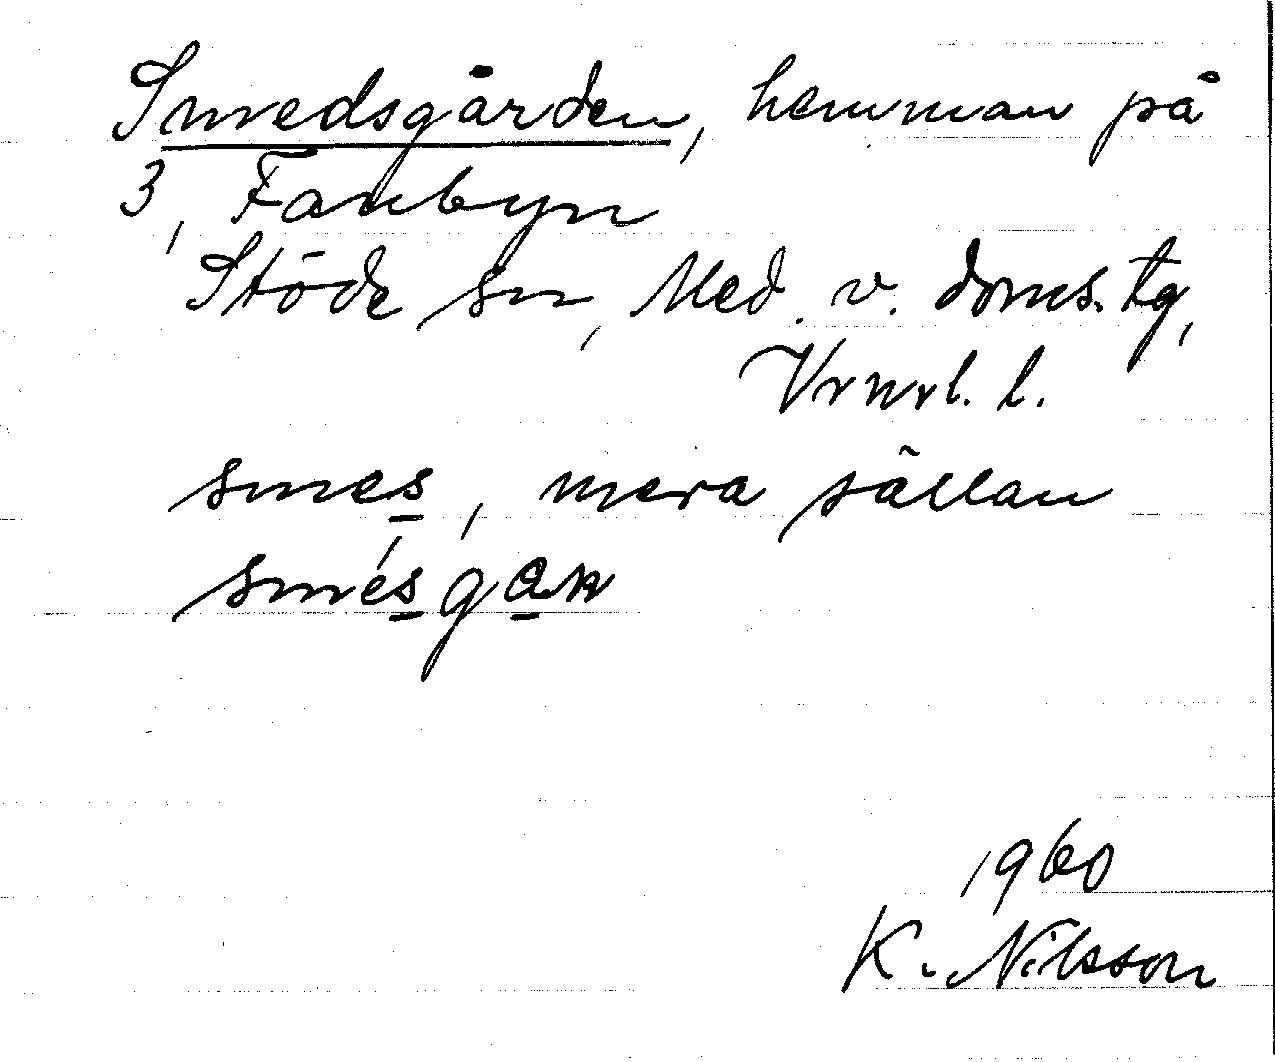 Smedsgården, hemman på
3, Fanbyn
Stöde sn, Med. v. doms. tg,
Vrnrl. l.
smes, mera sällan
smésgan
1960
K. Nilsson